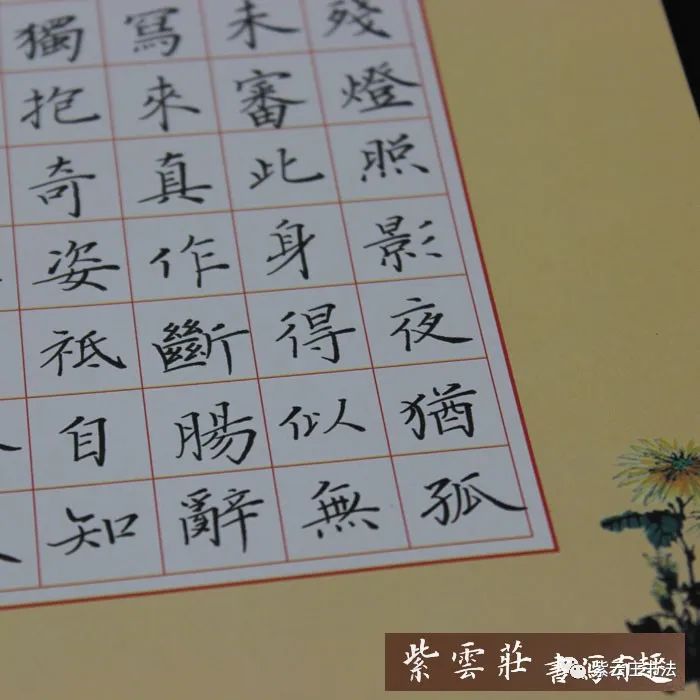 殘燈照影夜猶孤
未審此身得似無
寫來真作斷腸辭
獨抱奇姿祗自知
紫雲莊 書寫有趣
紫云庄书法